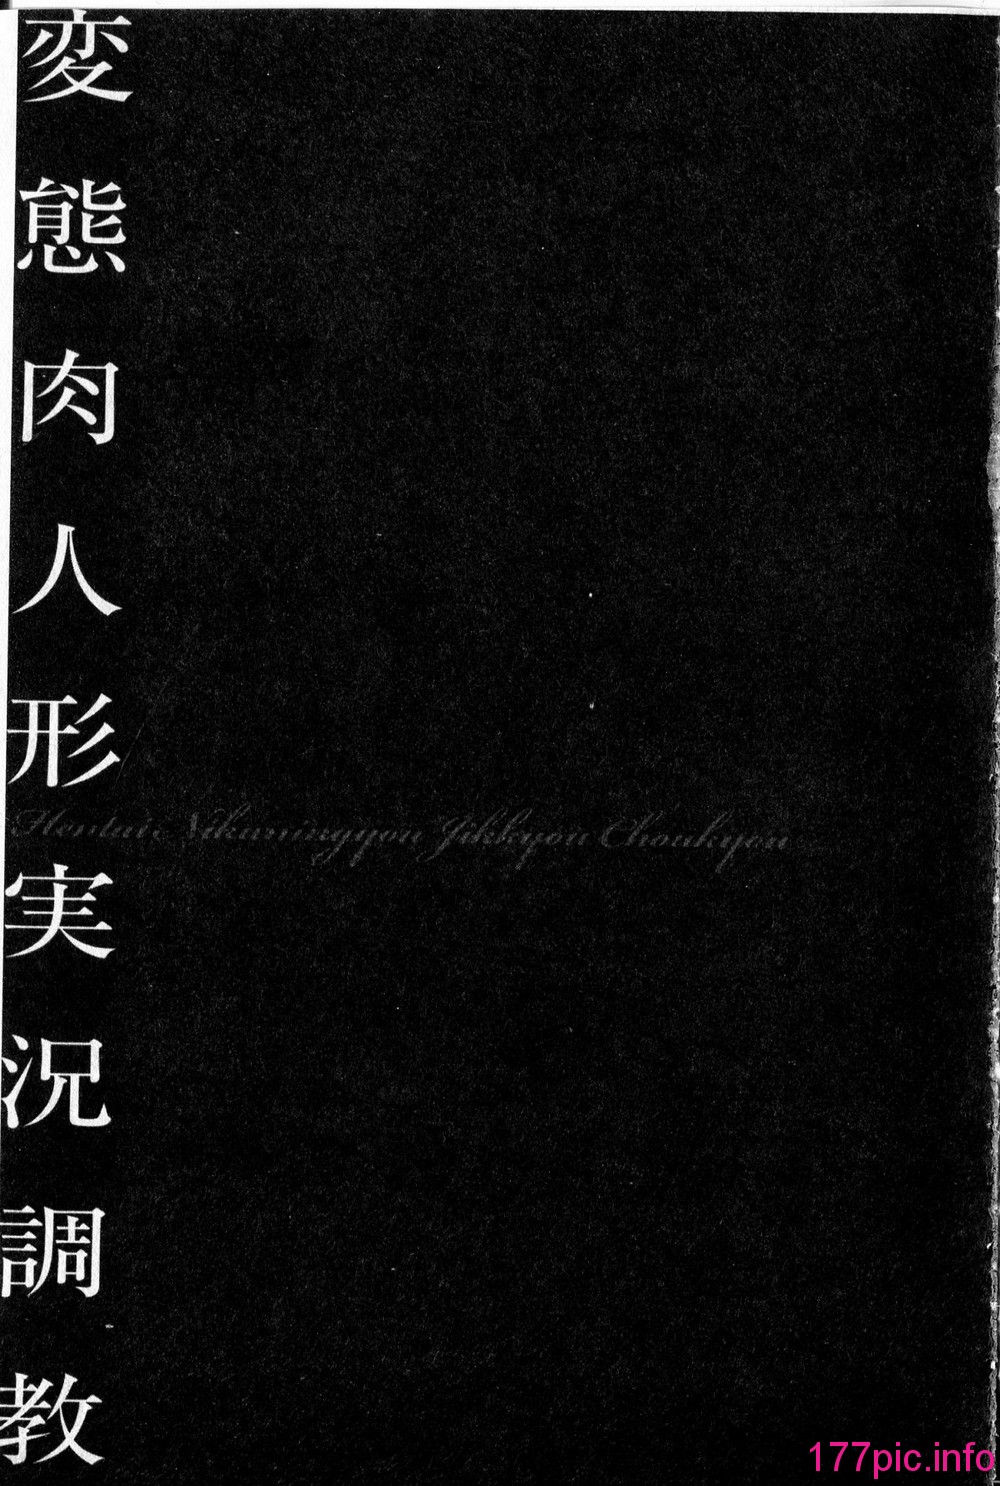 変態肉人形実況調教
Hentai Nikuningyou Jikkyou Choukyou
177pic.info